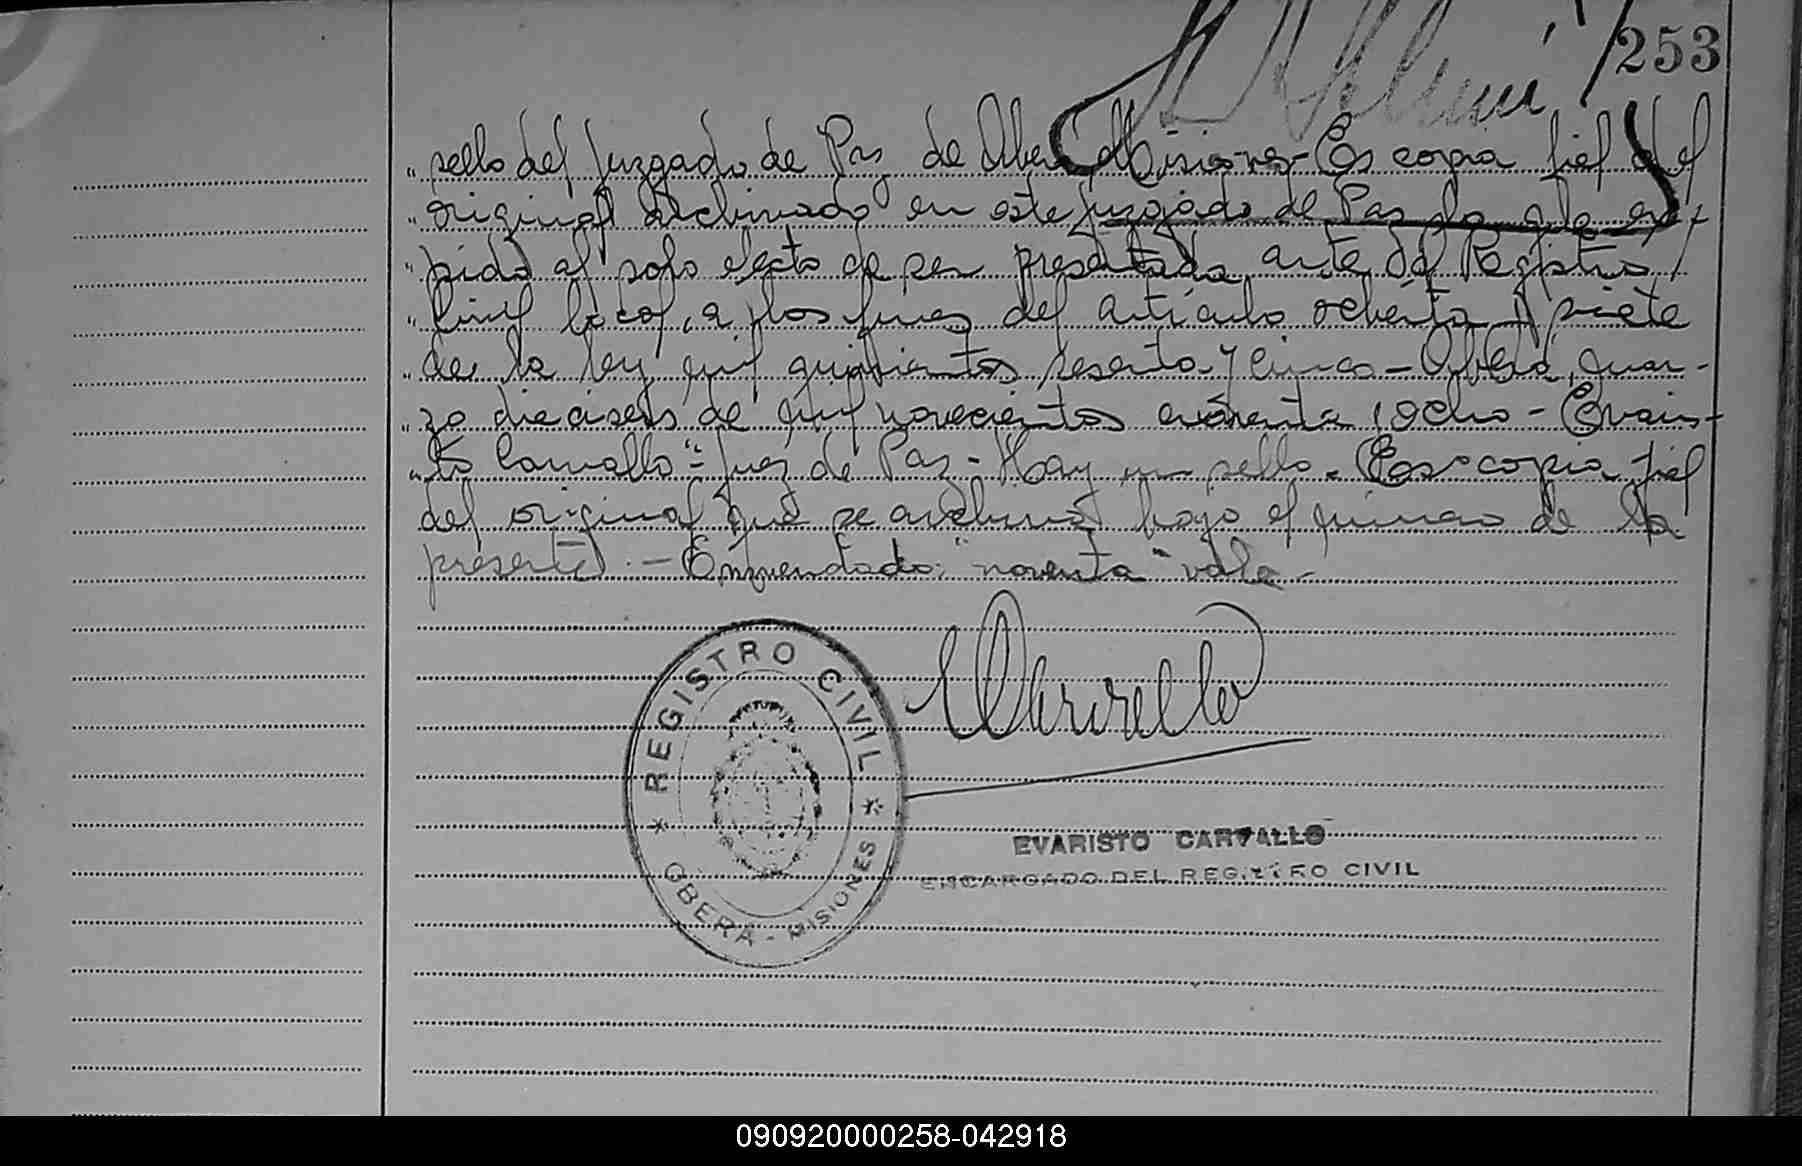 253
" sello del Juzgado de Paz de Oberá Misiones - Es copia fiel del
" original archivado en este juzgado de Paz la que ex-
" pido al solo efecto de ser presentada ante del Registro
" Civil local, a los fines del artículo ochenta y siete
" de la ley mil quinientos sesenta y cinco - Oberá, mar-
" zo dieciseis de mil novecientos cuarenta y ocho - Evaris-
" to Carvallo - Juez de Paz - Hay un sello. Es copia fiel
del original que se archiva bajo el número de la
presente. - Enmendado: "noventa" vale -
REGISTRO CIVIL
* OBERÁ - MISIONES *
ECarvallo
EVARISTO CARVALLO
ENCARGADO DEL REGISTRO CIVIL
090920000258-042918